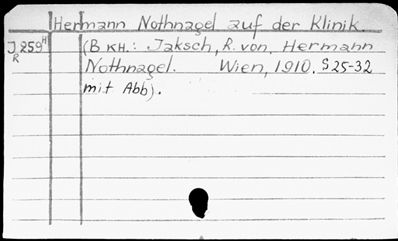 Hermann Nothnagel auf der Klinik.
J 259 H (В кн.: Jaksch, R. von, Hermann
R Nothnagel. Wien, 1910. S 25-32
mit Abb).